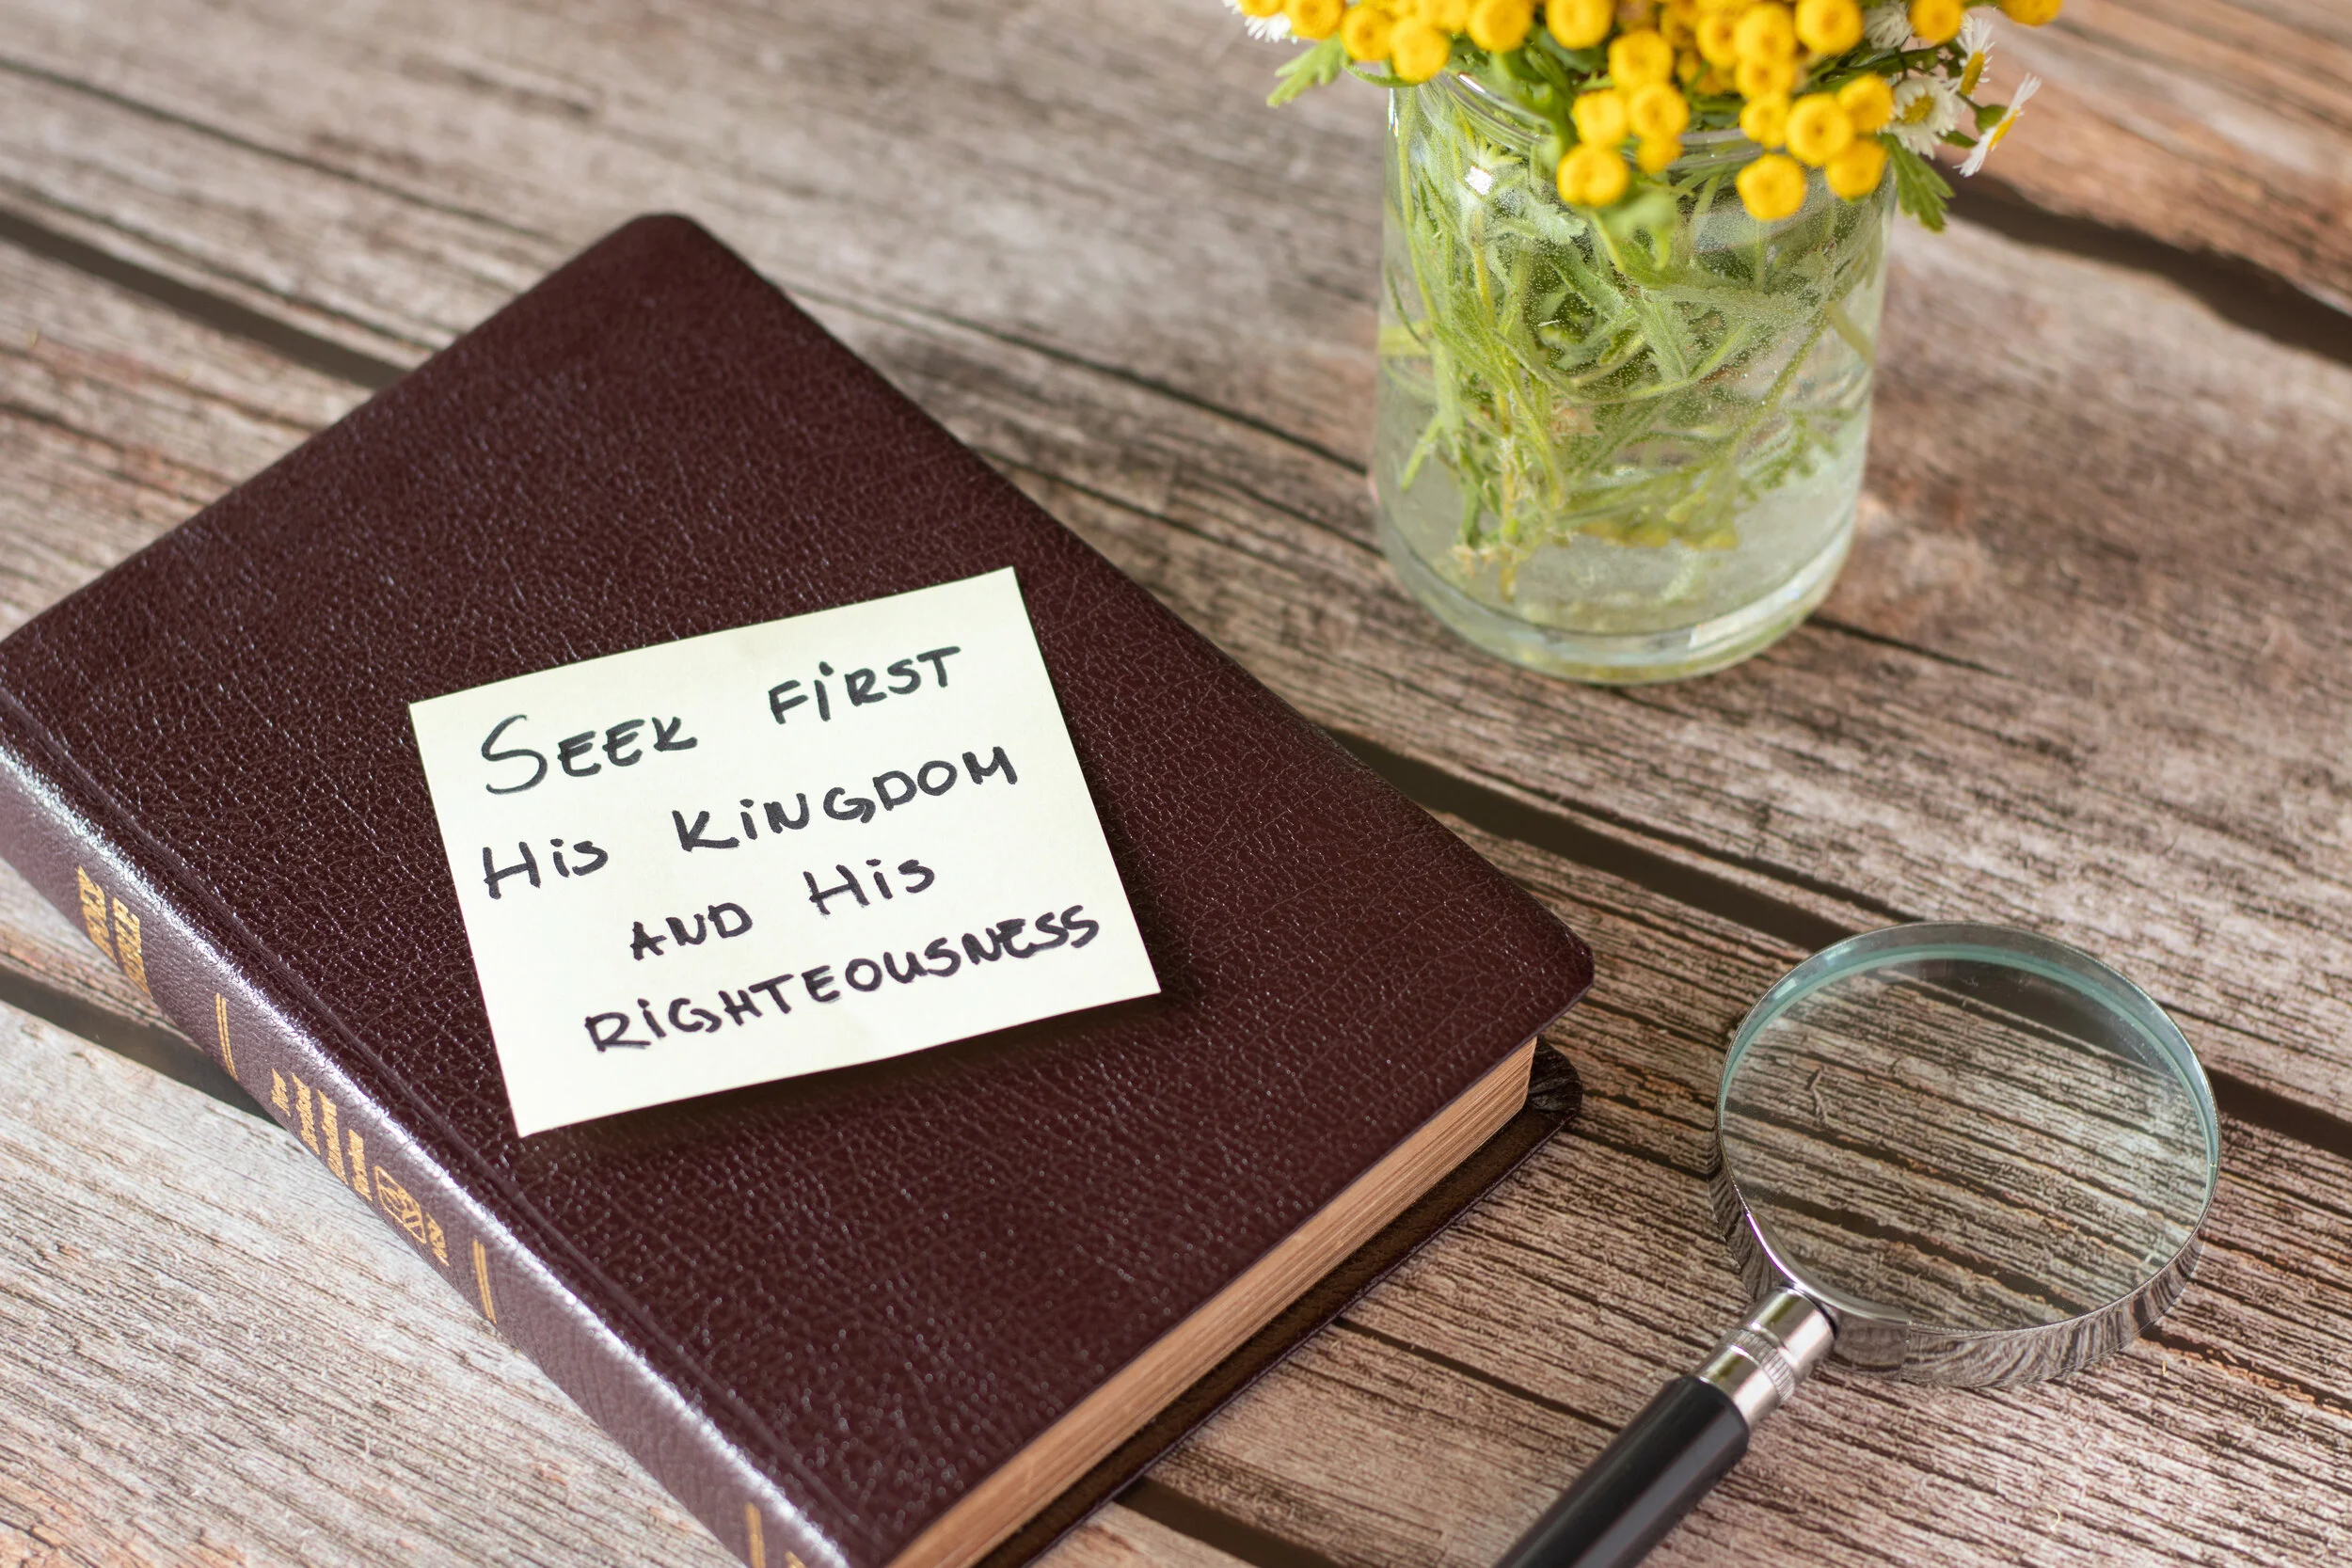 SEEK FIRST
His KiNGDOM
AND His
RiGHTEOUSNESS
HOLY
BIBLE